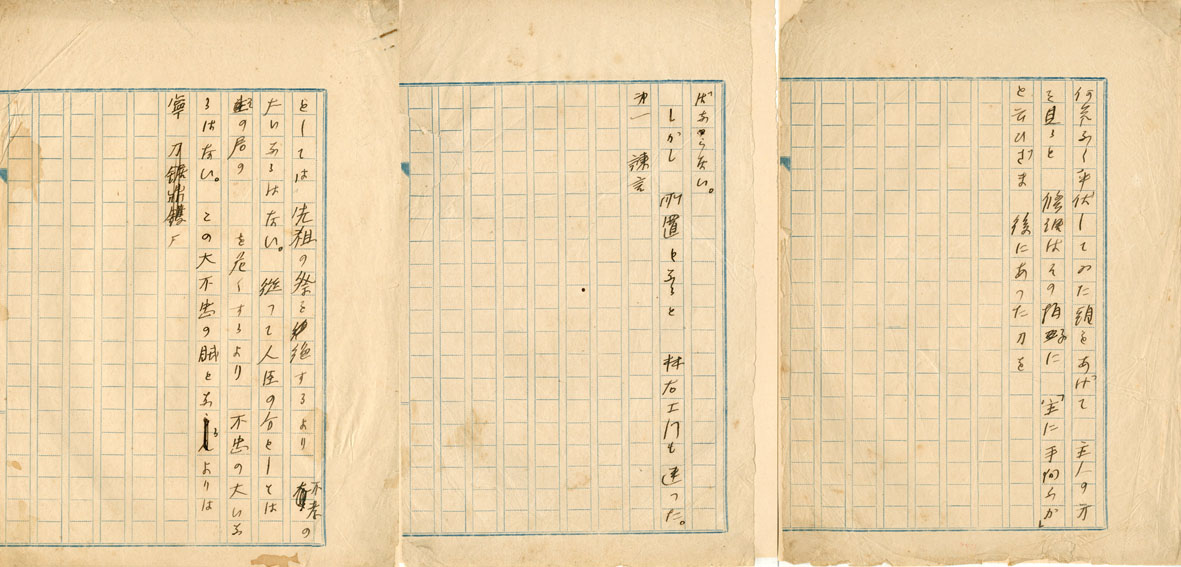 何気なく平伏してゐた頭をあげて 主人の方
を見ると 修理はその拍子に 「宇に手向ふか」
と云ひざま 後にあつた刀を
ばあらない。
しかし 所置となると 林右エ門も迷つた。
諫言
としては 先祖の祭を絶するより 不孝の
大いなるはない。従つて人臣の分としては
の君の を危くするより 不忠の大いな
るはない。この大不忠の賊となるよりは
寧 刀鋸鼎鑊